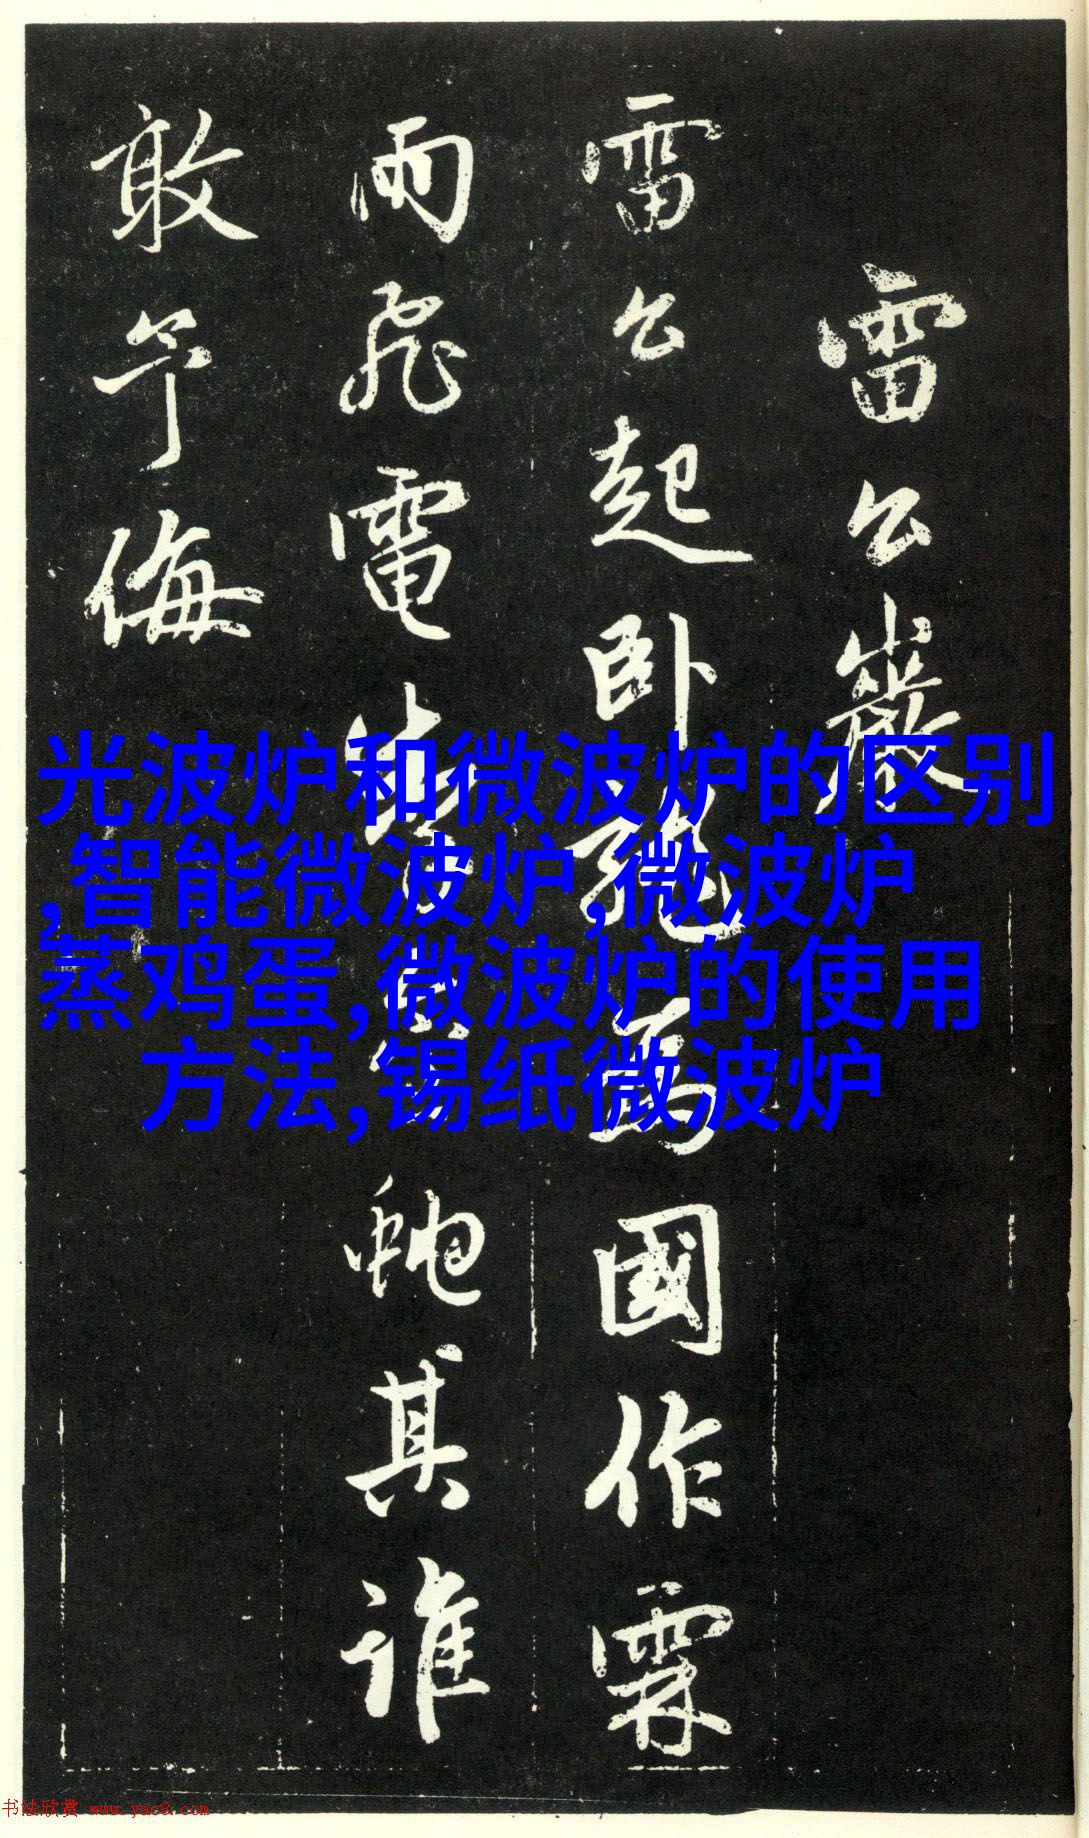 雷公巖
雷公起卧龍為國作霖
雨飛電蛇其誰
敢予侮
光波炉和微波炉的区别
,智能微波炉,微波炉
蒸鸡蛋,微波炉的使用
方法,锡纸微波炉
书法欣赏 www.yac8.com